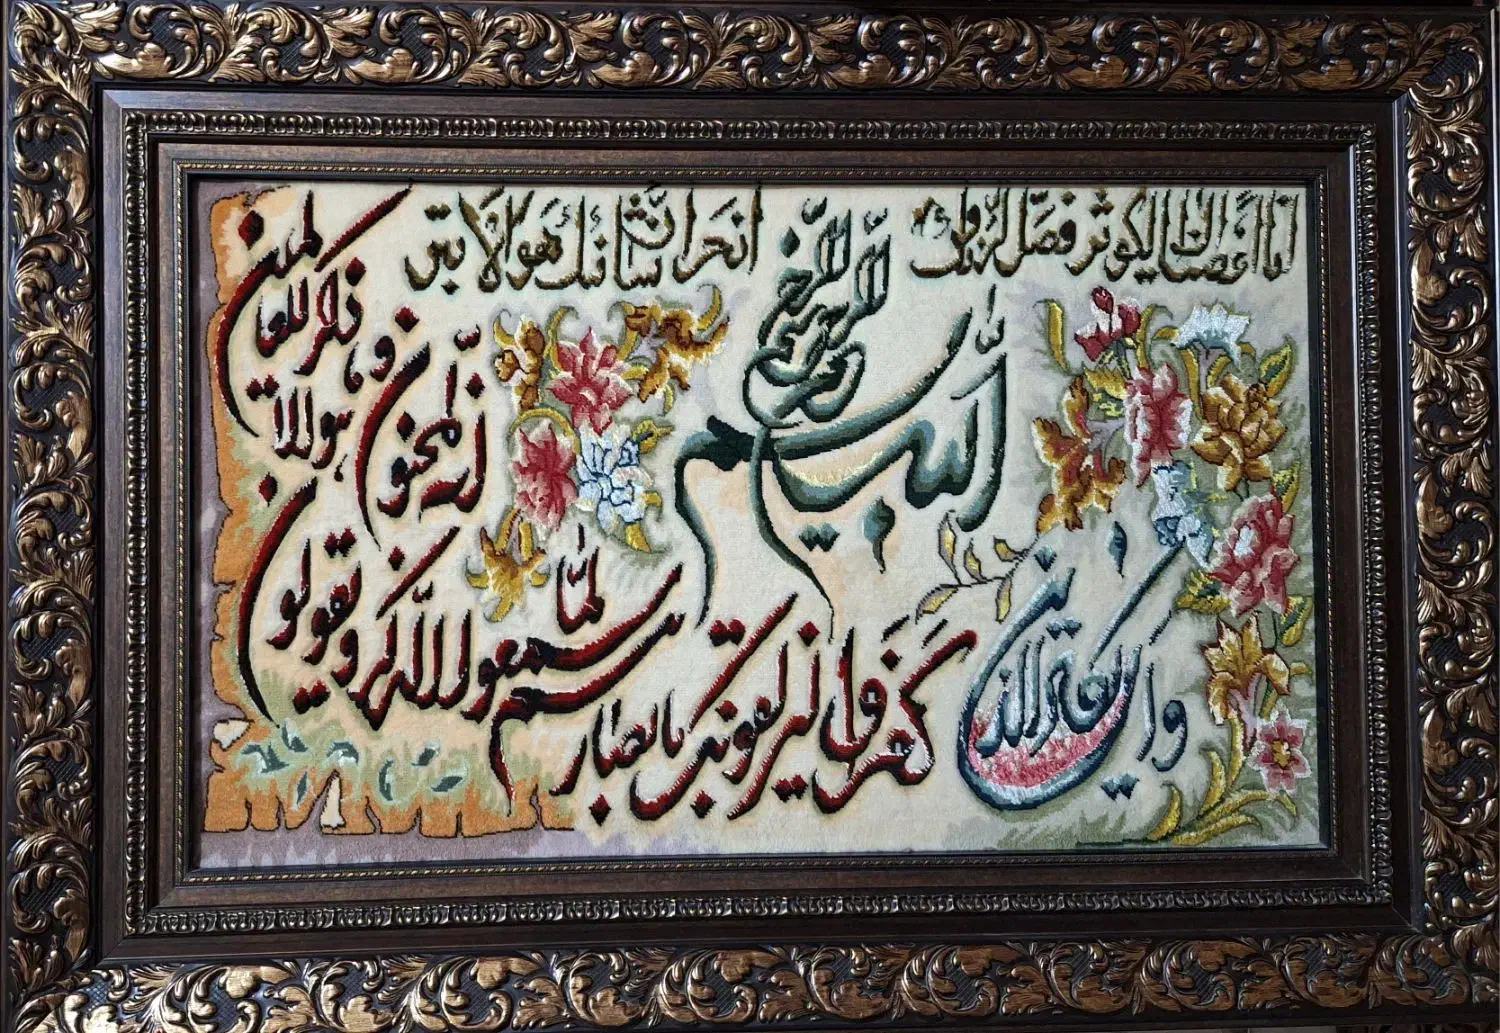 انا اعطیناك الكوثر فصل لربك و انحر ان شانئك هو الابتر
بسم الله الرحمن الرحیم
وان یكاد الذین
كفروا لیزلقونك بابصارهم لما سمعوا الذكر و یقولون
انه لمجنون و ما هو الا ذكر للعالمین